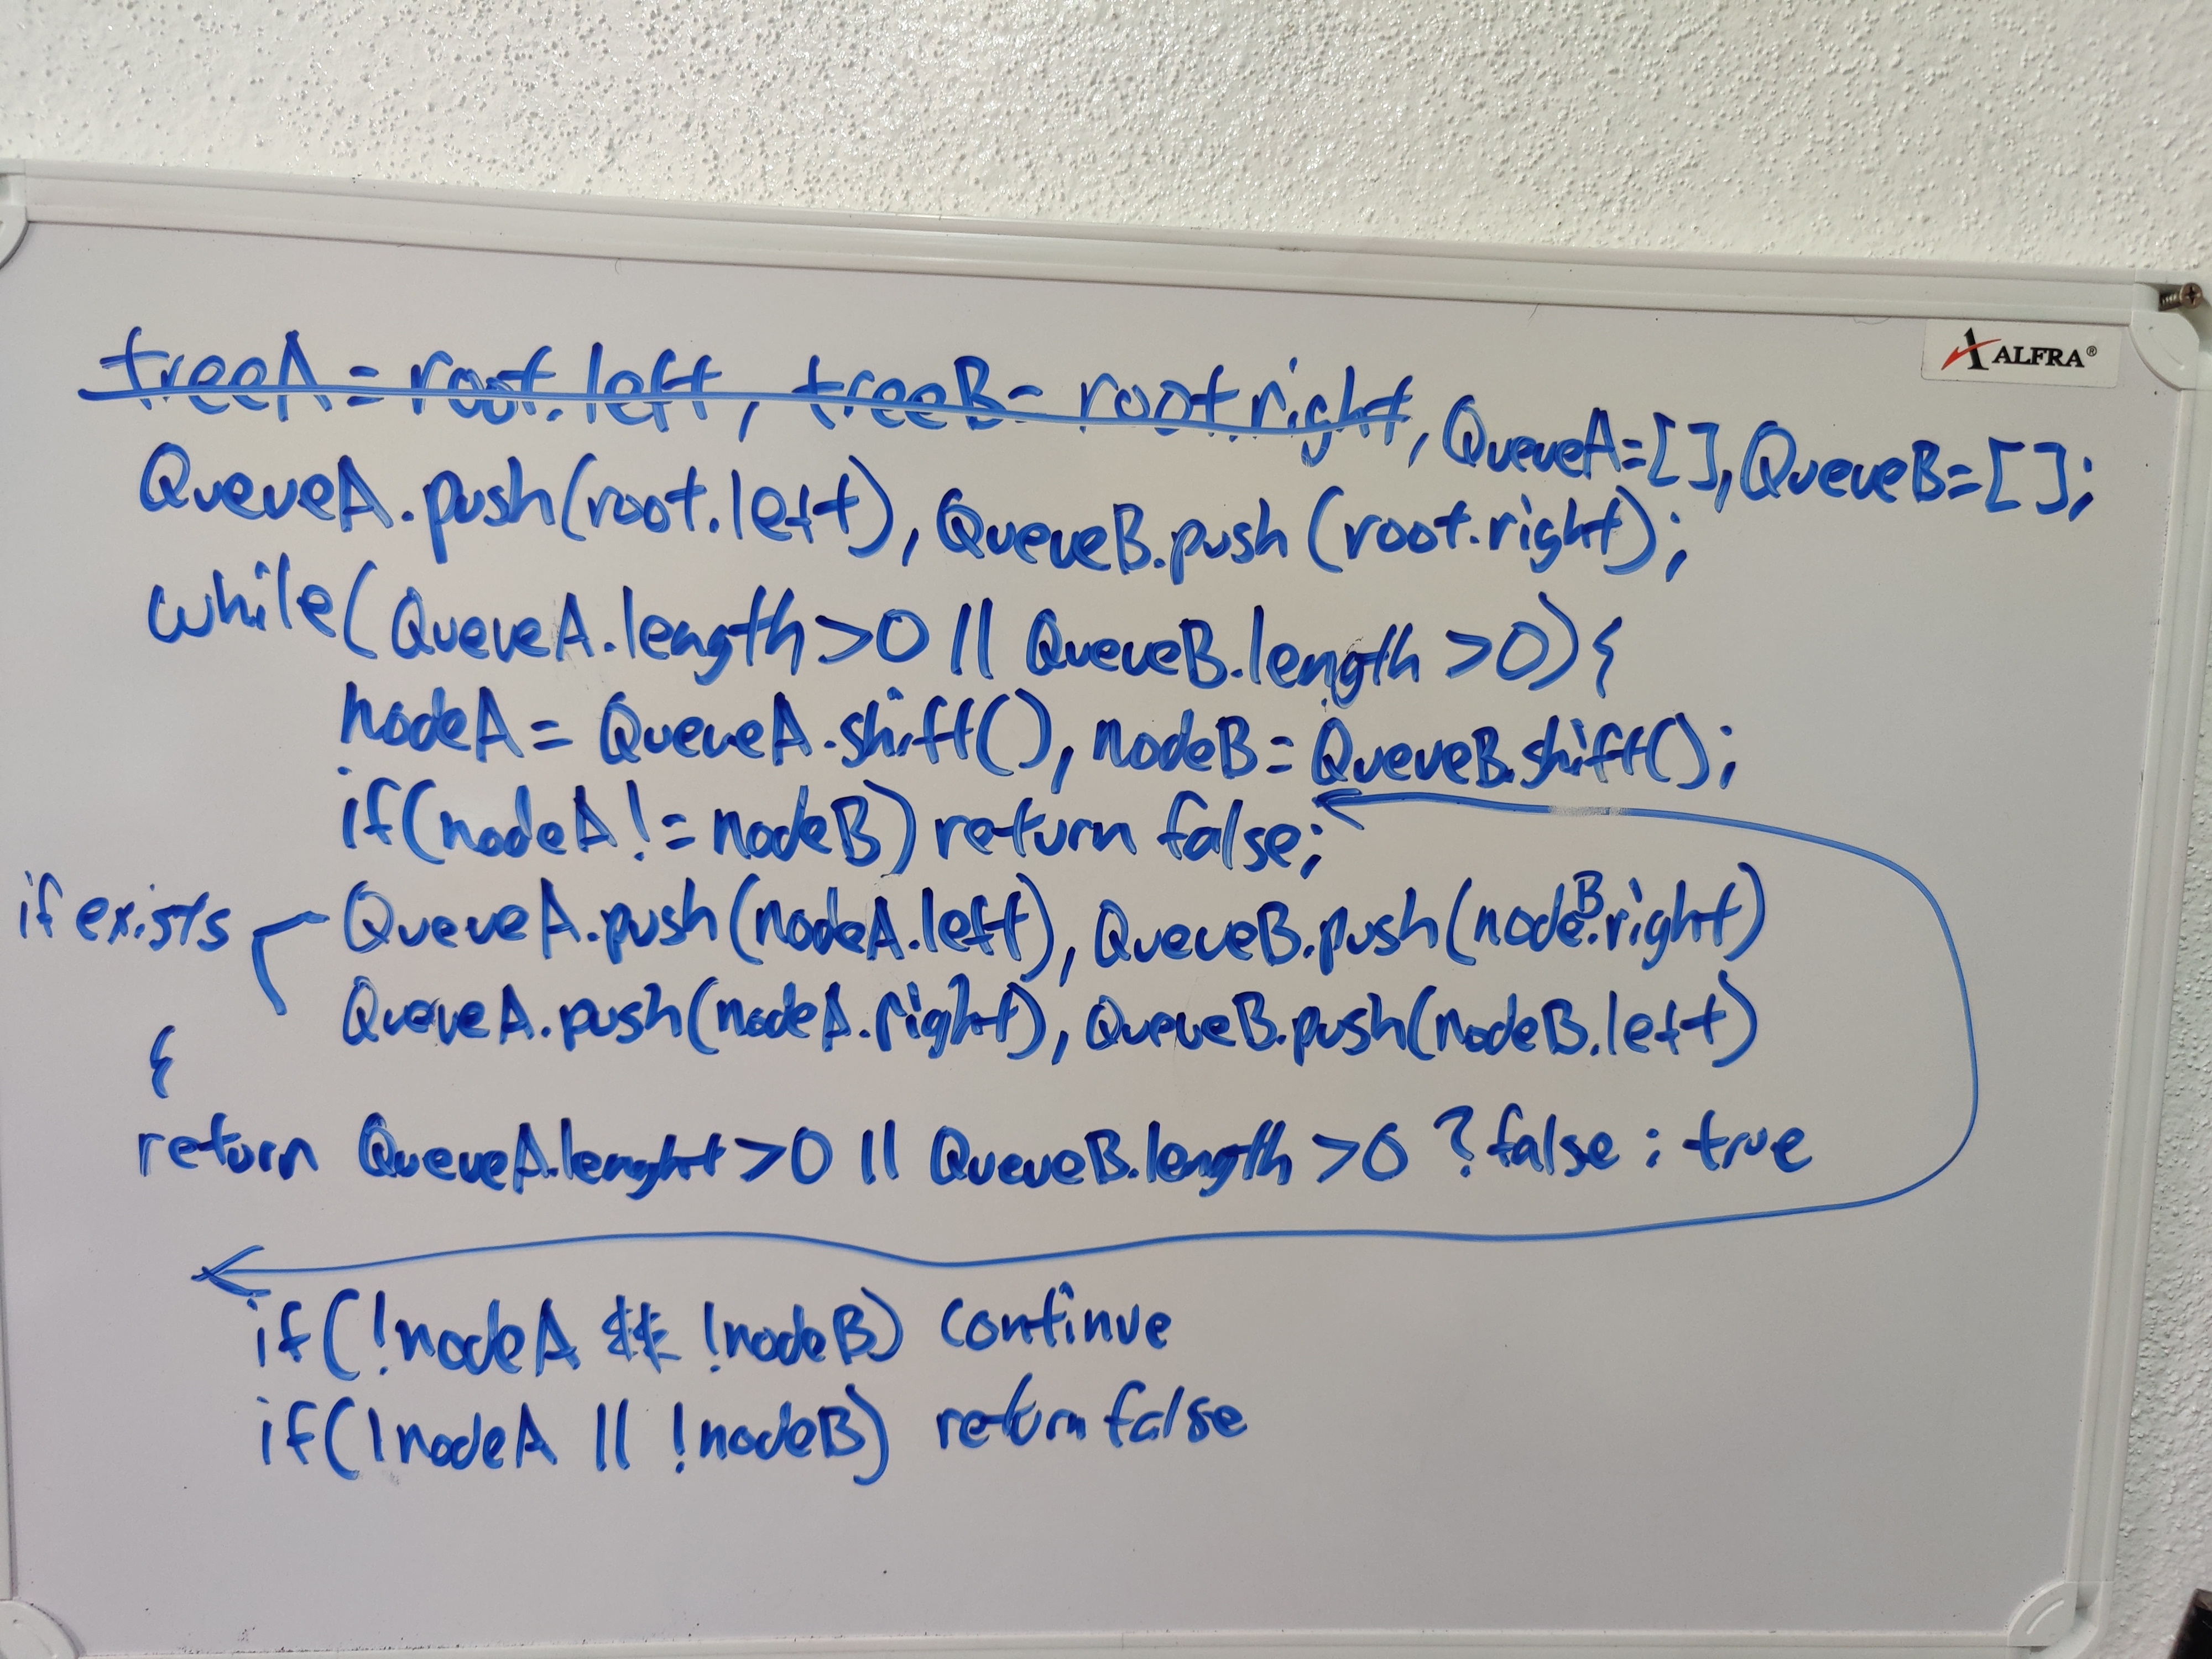 ALFRA®
treeA = root.left, treeB = root.right, QueueA=[], QueueB=[];
QueueA.push(root.left), QueueB.push(root.right);
while(QueueA.length>0 || QueueB.length>0){
nodeA = QueueA.shift(), nodeB = QueueB.shift();
if(nodeA != nodeB) return false;
if exists QueueA.push(nodeA.left), QueueB.push(nodeB.right)
QueueA.push(nodeA.right), QueueB.push(nodeB.left)
{
return QueueA.lenght>0 || QueueB.length>0 ? false : true
if(!nodeA && !nodeB) continue
if(!nodeA || !nodeB) return false